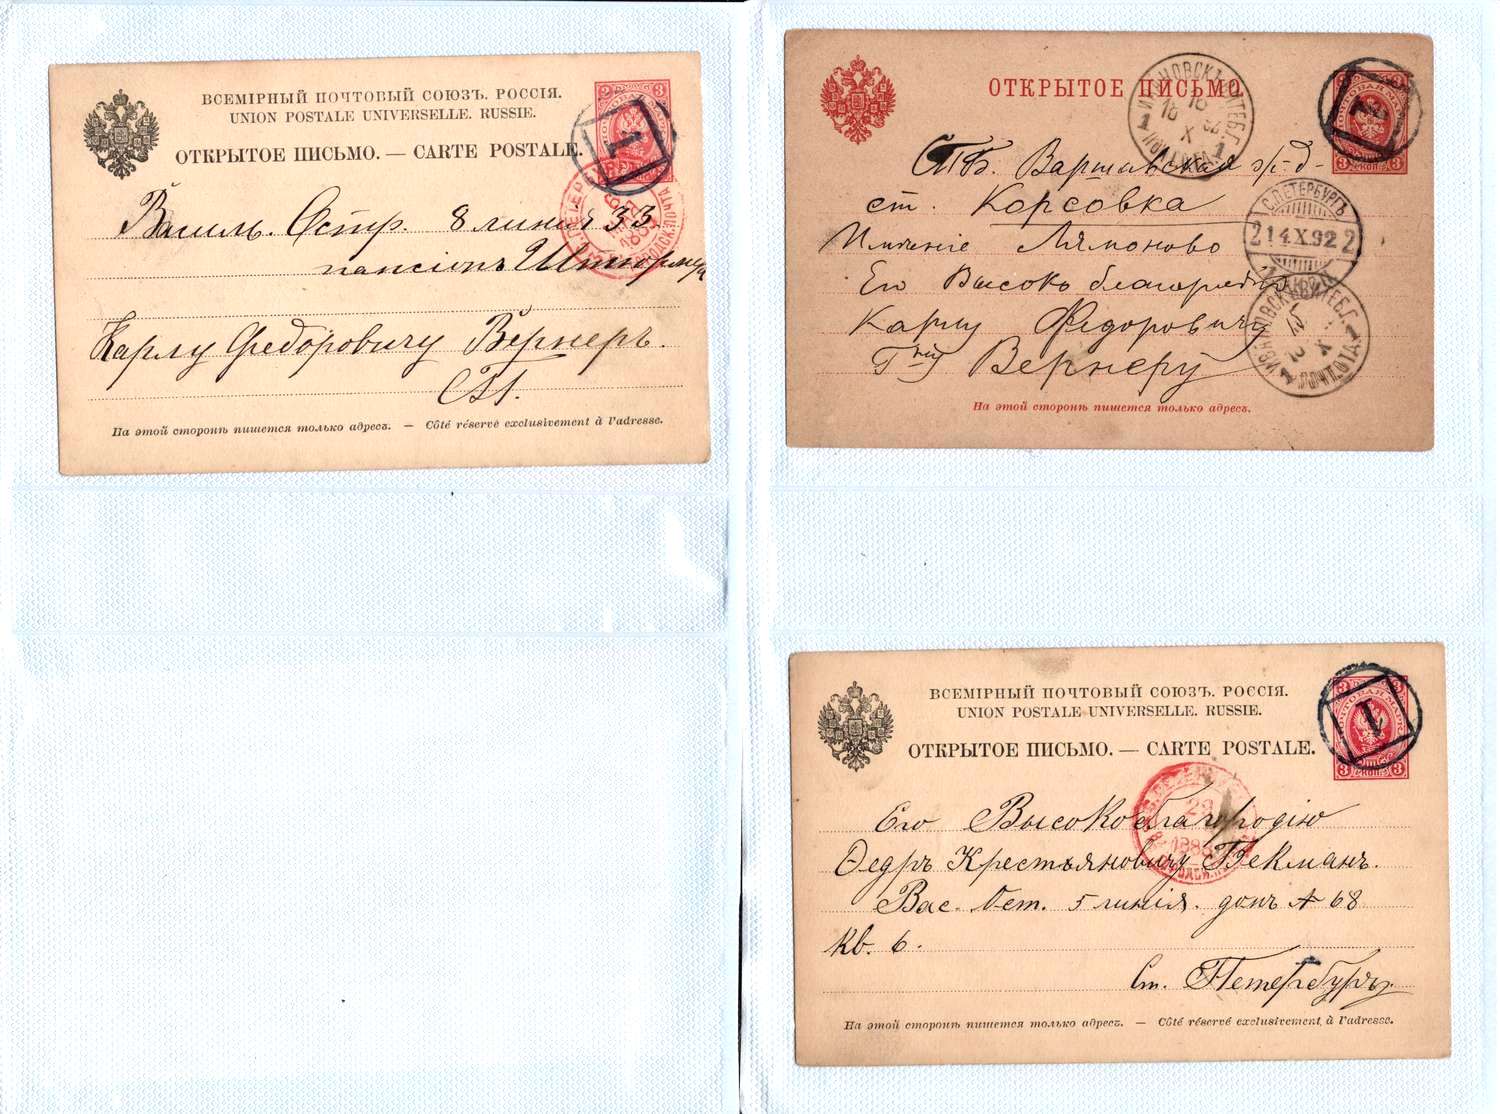 ВСЕМІРНЫЙ ПОЧТОВЫЙ СОЮЗЪ. РОССІЯ.
UNION POSTALE UNIVERSELLE. RUSSIE.
ОТКРЫТОЕ ПИСЬМО. — CARTE POSTALE.
1
Василь. Остр. 8 линія 33
пансіонъ
Карлу Федоровичу Вернеръ.
На этой сторонѣ пишется только адресъ. — Côté réservé exclusivement à l'adresse.
ОТКРЫТОЕ ПИСЬМО.
СПБ. Варшавская ж-д-
ст. Корсовка
Имѣніе Лямоново
Его Высокоблагородію
Карлу Федоровичу
Гну Вернеру
С.ПЕТЕРБУРГЪ
2 14.X.92 2
ПОЧТОТА
На этой сторонѣ пишется только адресъ.
ВСЕМІРНЫЙ ПОЧТОВЫЙ СОЮЗЪ. РОССІЯ.
UNION POSTALE UNIVERSELLE. RUSSIE.
ОТКРЫТОЕ ПИСЬМО. — CARTE POSTALE.
1
Его Высокоблагородію
Федръ Крестьяновичу Бекманъ.
Вас. Ост. 5 линія. домъ № 68
кв. 6.
Ст. Петербургъ
На этой сторонѣ пишется только адресъ. — Côté réservé exclusivement à l'adresse.